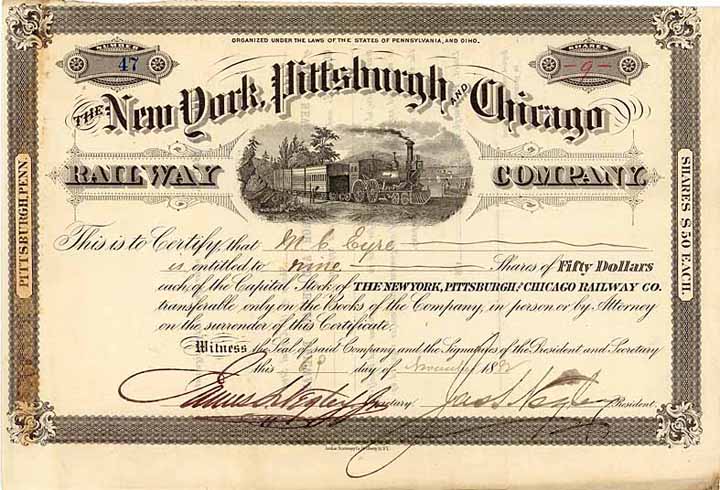 ORGANIZED UNDER THE LAWS OF THE STATES OF PENNSYLVANIA, AND OHIO.
NUMBER
47
SHARES
9
THE New York, Pittsburgh AND Chicago
RAILWAY COMPANY.
PITTSBURGH PENN.
SHARES $50 EACH.
This is to Certify, that M C Eyre
is entitled to nine Shares of Fifty Dollars
each, of the Capital Stock of THE NEW YORK, PITTSBURGH AND CHICAGO RAILWAY CO.
transferable only on the Books of the Company, in person or by Attorney
on the surrender of this Certificate.
Witness the Seal of said Company and the Signatures of the President and Secretary
this day of November 188
Secretary President.